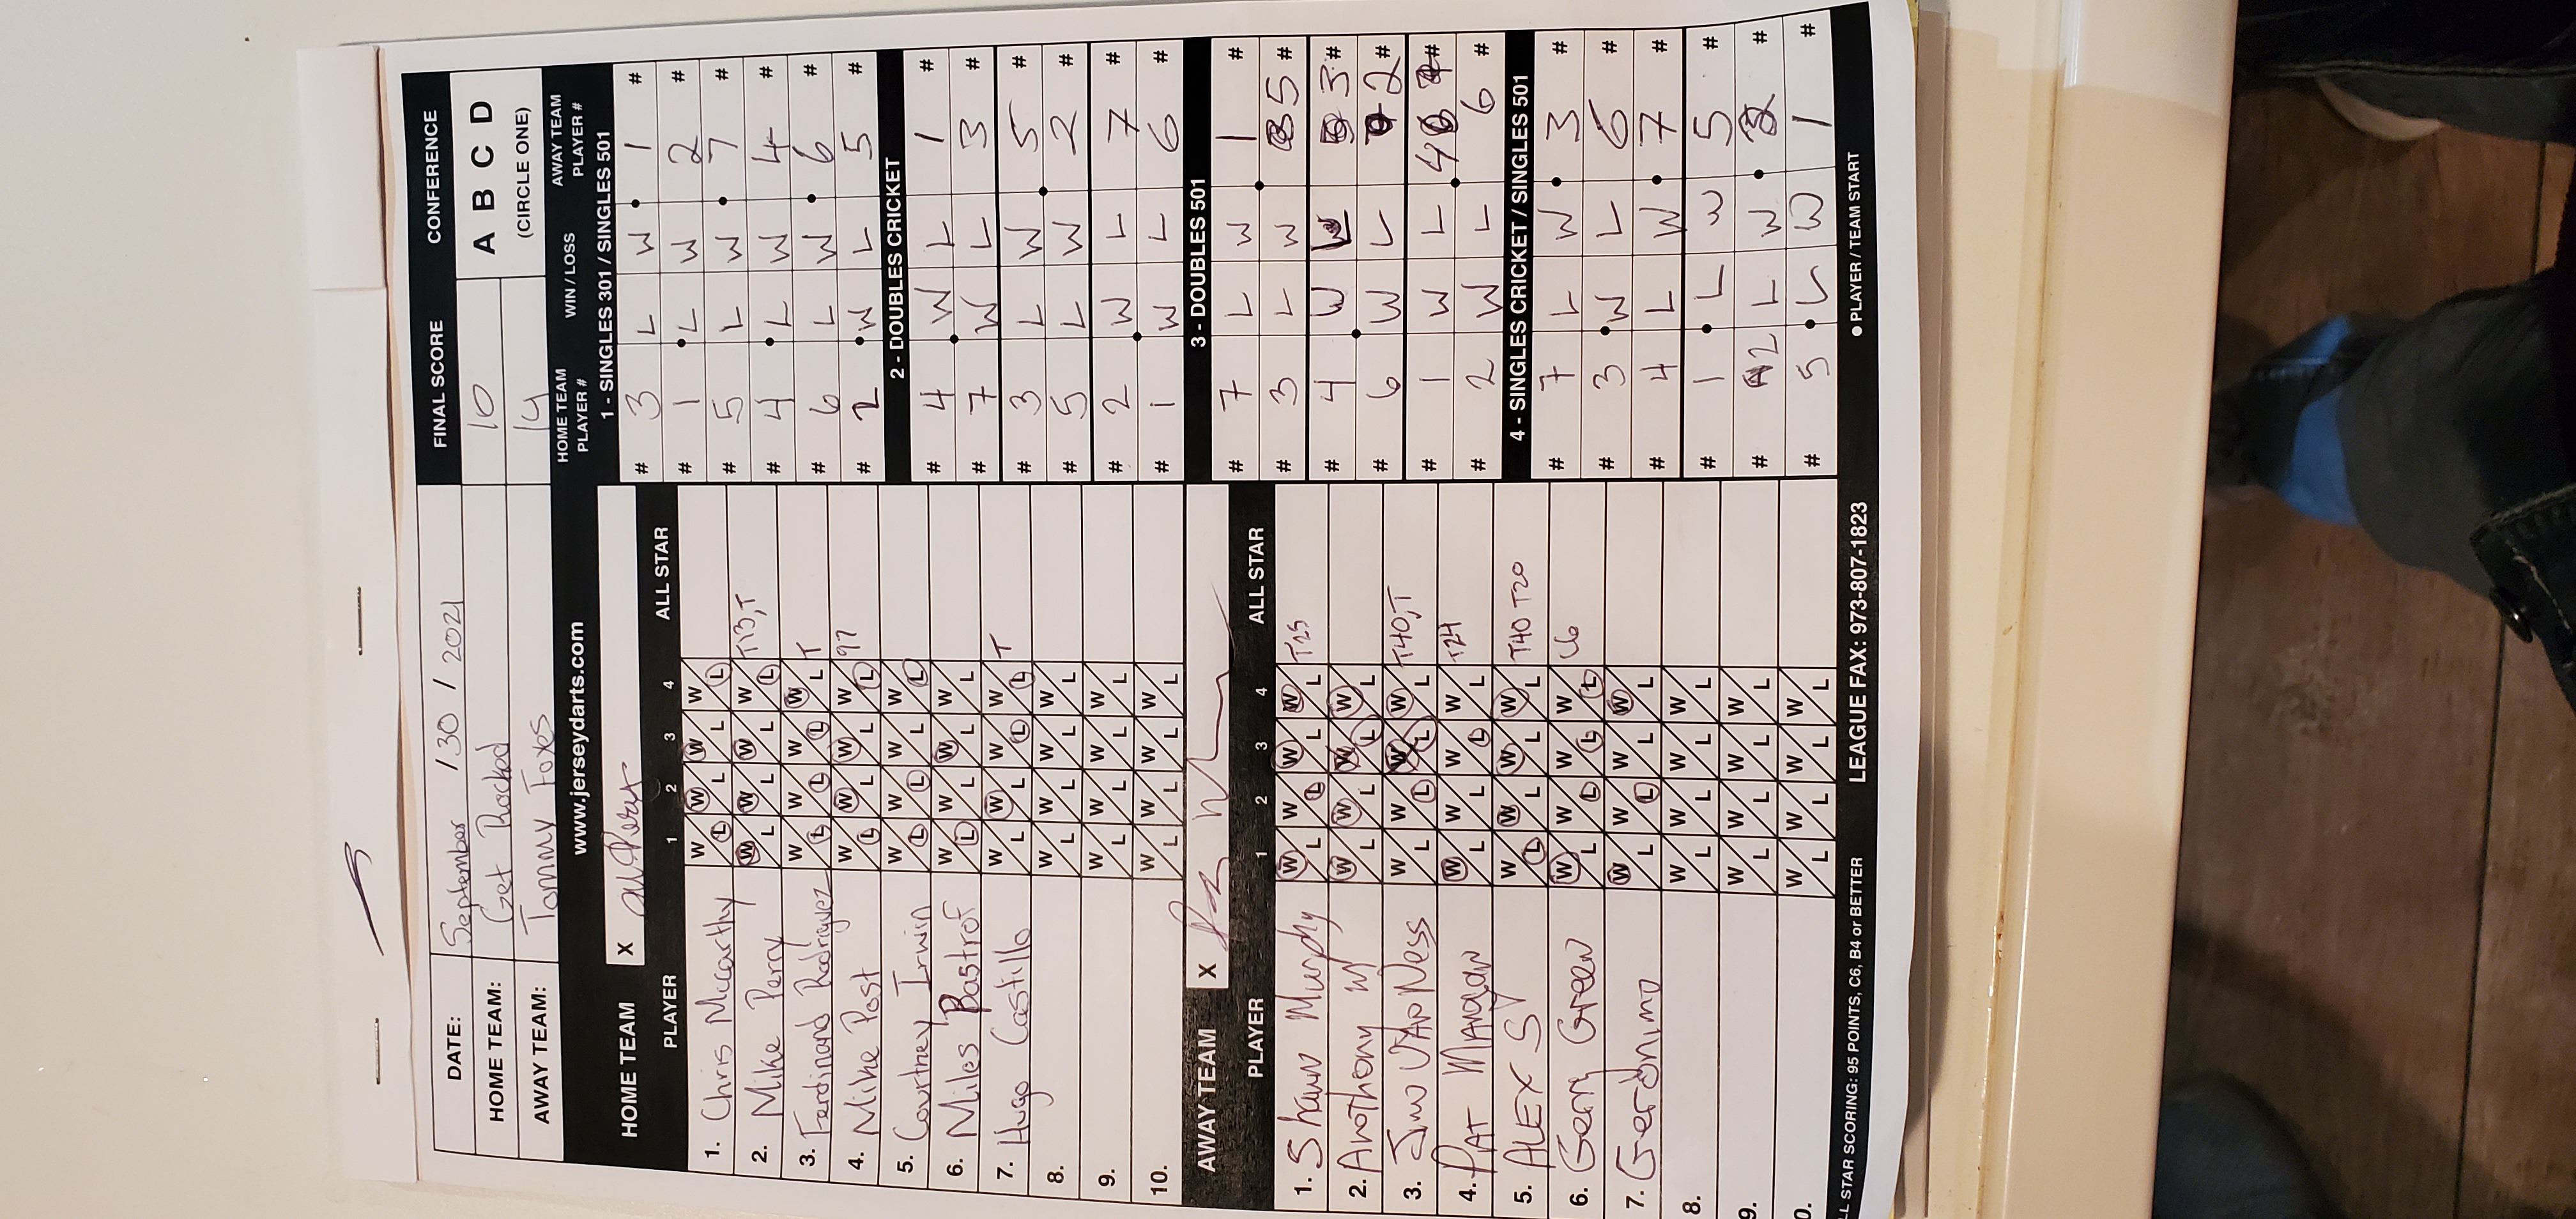 DATE: September / 30 / 2021 FINAL SCORE CONFERENCE
HOME TEAM: Get Rocked 10 A B C D
AWAY TEAM: Tommy Foxes 14 (CIRCLE ONE)
www.jerseydarts.com
HOME TEAM X
PLAYER 1 2 3 4 ALL STAR
1. Chris Mccarthy W L W L W L W L
2. Mike Peray W L W L W L W L T13,T
3. Ferdinand Rodriguez W L W L W L W L T
4. Mike Post W L W L W L W L 97
5. Courtney Irwin W L W L W L W L
6. Miles Bastrof W L W L W L W L
7. Hugo Castillo W L W L W L W L T
8. W L W L W L W L
9. W L W L W L W L
10. W L W L W L W L
AWAY TEAM X
PLAYER 1 2 3 4 ALL STAR
1. Shawn Murphy W L W L W L W L T25
2. Anothony W L W L W L W L
3. Jimo VanNess W L W L W L W L T40,T
4. PAT MANGAN W L W L W L W L T24
5. ALEX SY W L W L W L W L T40 T20
6. Gerry Green W L W L W L W L C6
7. Gerönimo W L W L W L W L
8. W L W L W L W L
9. W L W L W L W L
0. W L W L W L W L
HOME TEAM PLAYER # WIN / LOSS AWAY TEAM PLAYER #
1 - SINGLES 301 / SINGLES 501
# 3 L W 1 #
# 1 L W 2 #
# 5 L W 7 #
# 4 L W 4 #
# 6 L W 6 #
# 2 W L 5 #
2 - DOUBLES CRICKET
# 4 W L 1 #
# 7 W L 3 #
# 3 L W 5 #
# 5 L W 2 #
# 2 W L 7 #
# 1 W L 6 #
3 - DOUBLES 501
# 7 L W 1 #
# 3 L W 5 #
# 4 W L 3 #
# 6 W L 2 #
# 1 W L 4 #
# 2 W L 6 #
4 - SINGLES CRICKET / SINGLES 501
# 7 L W 3 #
# 3 W L 6 #
# 4 L W 7 #
# 1 L W 5 #
# 2 L W #
# 5 L W 1 #
LL STAR SCORING: 95 POINTS, C6, B4 or BETTER LEAGUE FAX: 973-807-1823 ● PLAYER / TEAM START